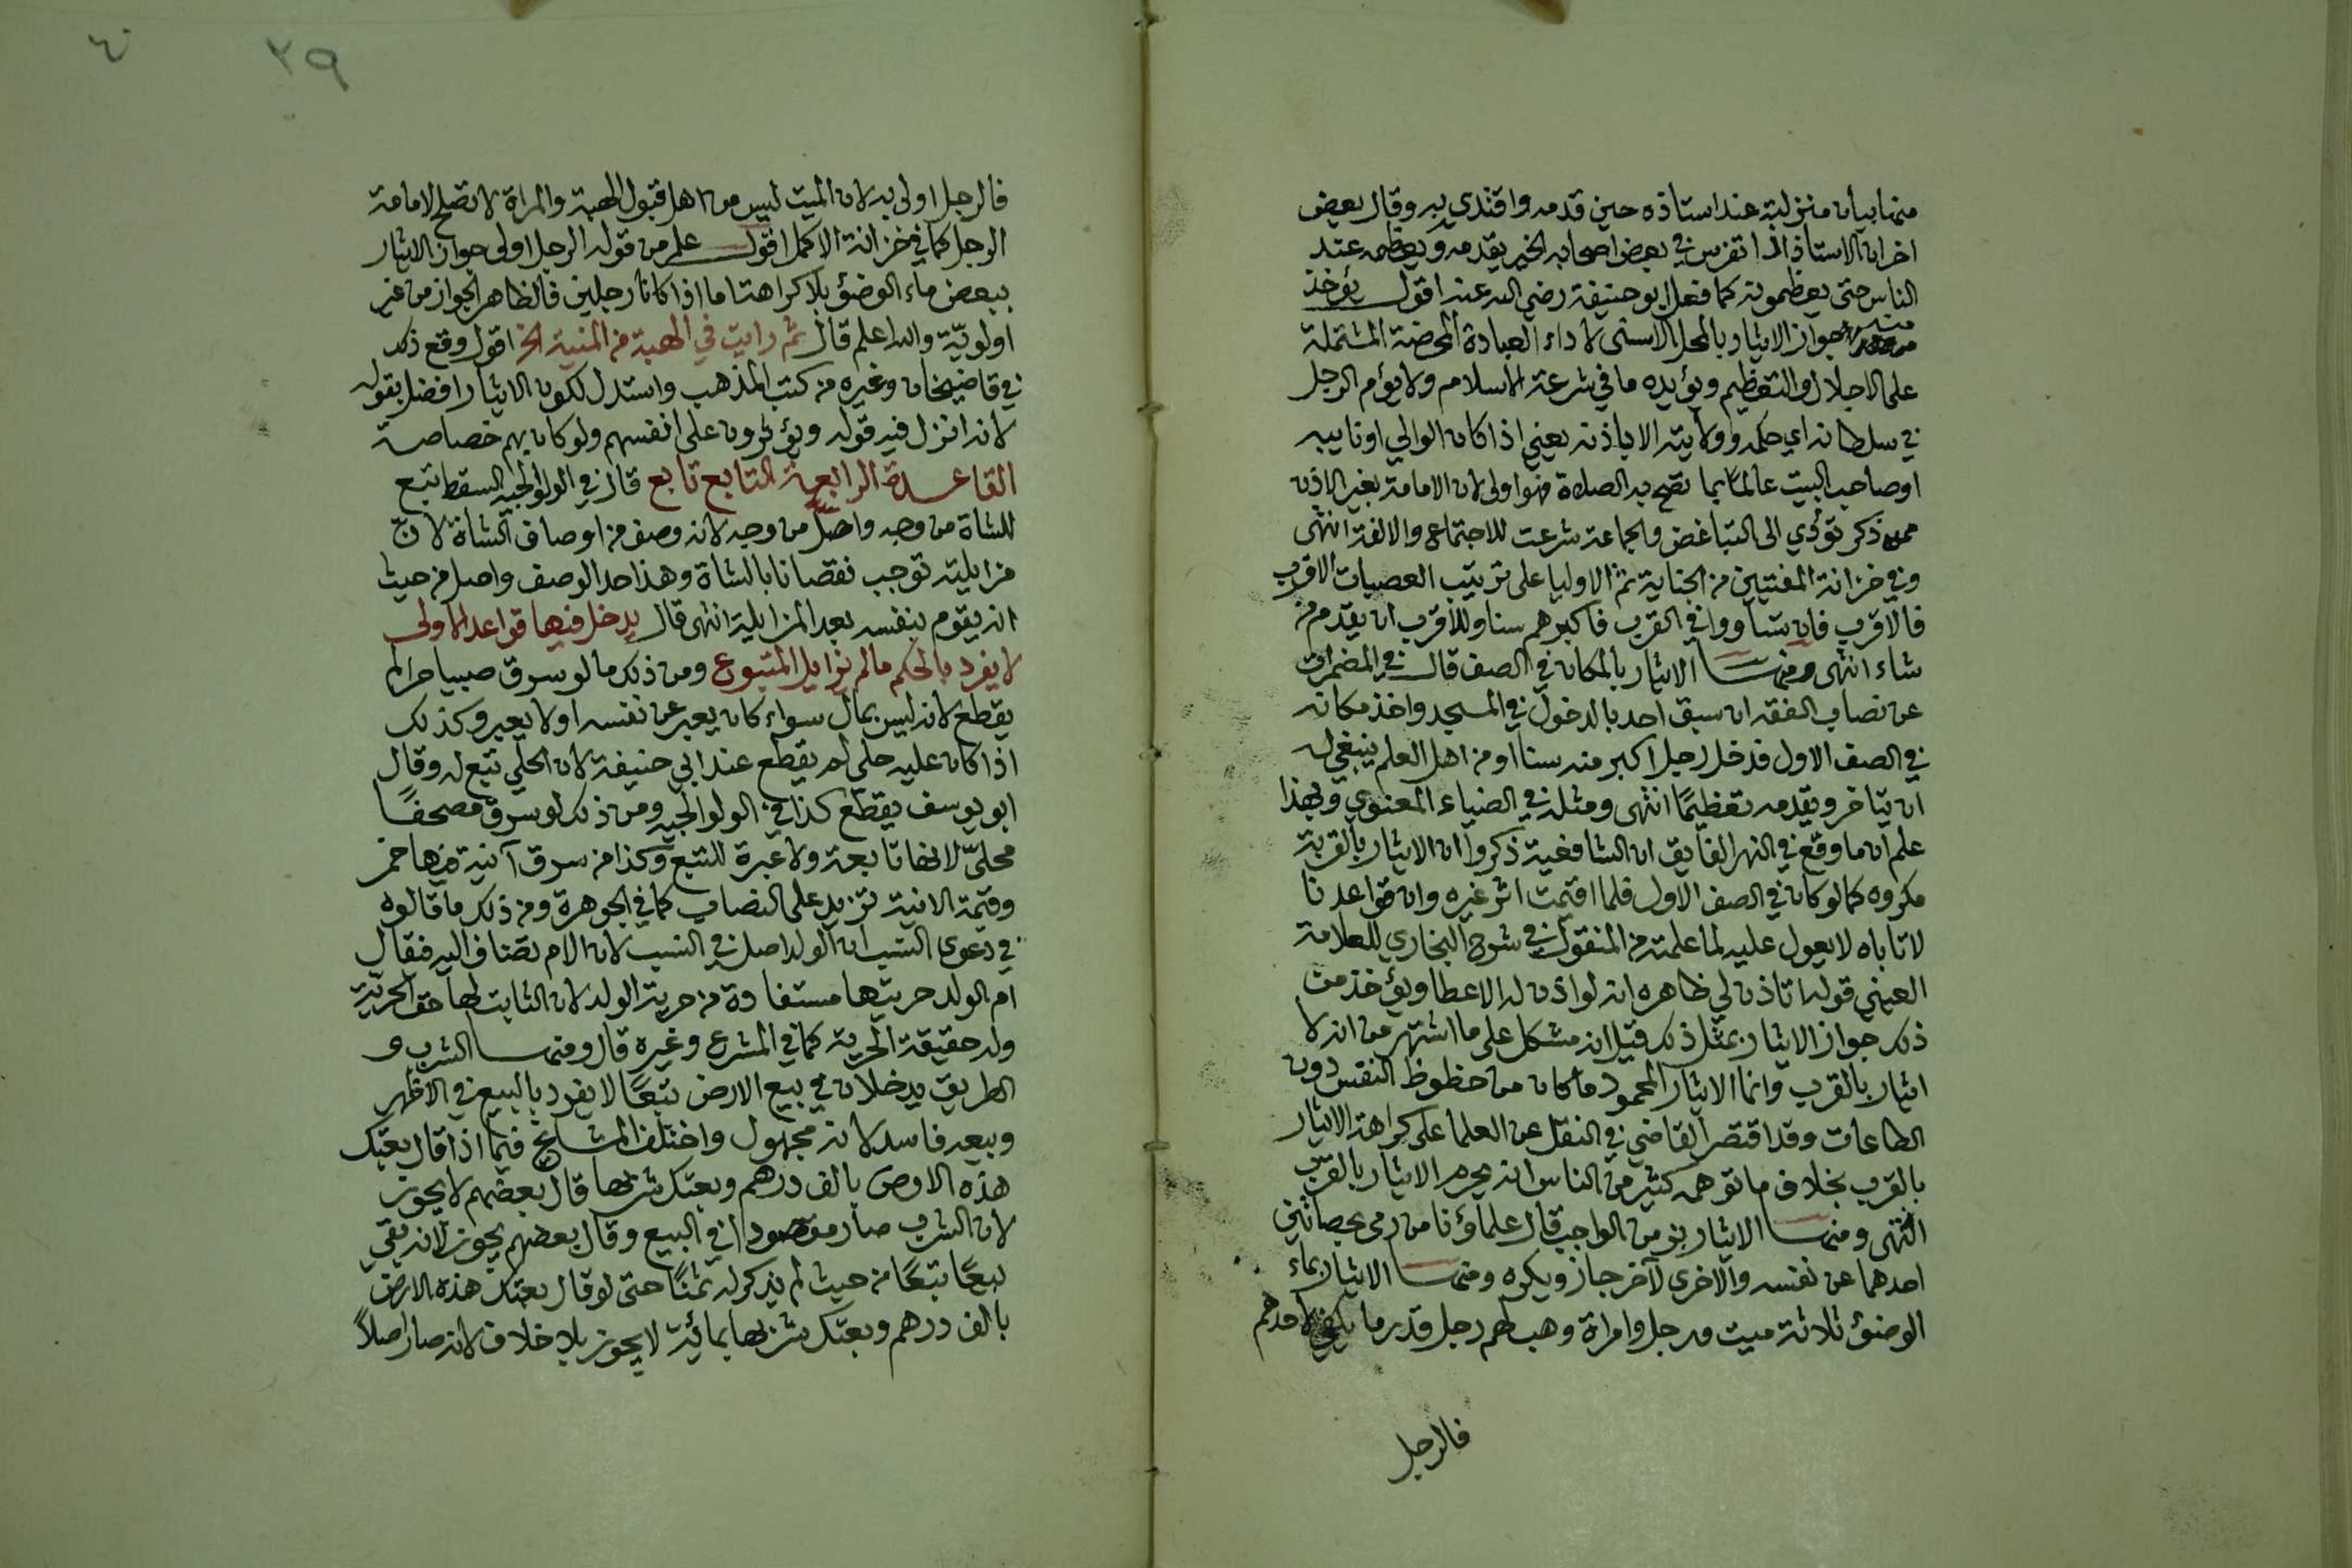 منها بيان منزلته عند استاذه حين قدمه واقتدي به وقال بعض
اخران الاستاذ اذا تفرس في بعض اصحابه الخير يقدمه ويعظمه عند
الناس حتى يعظمونه كما فعل ابو حنيفة رضي الله عنه اقول يؤخذ
منه جواز الايثار بالمحل الاسنى لاداء العبادة المحضة المشتملة
على الاجلال والتعظيم ويؤيده ما في شرعة الاسلام ولا يؤم الرجل
في سلطانه اي حكمه وولايته الا باذنه يعني اذا كان الوالي او نايبه
او صاحب البيت عالما بما تصح به الصلاة فهو اولى لان الامامة بغير الاذن
ممن ذكر تؤدي الى التباغض والجماعة شرعت للاجتماع والالفة انتهى
وفي خزانة المفتيين من الجناية ثم الاوليا على ترتيب العصبات الاقرب
فالاقرب فان تساووا في القرب فاكبرهم سنا وللاقرب ان يقدم من
شاء انتهى ومنها الايثار بالمكان في الصف قال في المضمرات
عن نصاب الفقه ان سبق احد بالدخول في المسجد واخذ مكانه
في الصف الاول فدخل رجل اكبر منه سنا او من اهل العلم ينبغي له
ان يتاخر ويقدمه تعظيمًا انتهى ومثله في الضياء المعنوي وبهذا
علم ان ما وقع في النهر الفايق ان الشافعية ذكروا ان الايثار بالقربة
مكروه كما لو كان في الصف الاول فلما اقيمت اثر غيره وان قواعدنا
لا تاباه لا يعول عليه لما علمته من المنقول في شرح البخاري للعلامة
العيني قوله اتاذن لي ظاهره انه لو اذن له لاعطا ويؤخذ من
ذلك جواز الايثار بمثل ذلك قيل انه مشكل على ما اشتهر من انه لا
ايثار بالقرب وانما الايثار المحمود ما كان من حظوظ النفس دون
الطاعات وقد اقتصر القاضي في النقل عن العلما على كراهة الايثار
بالقرب بخلاف ما توهمه كثير من الناس انه يحرم الايثار بالقرب
انتهى ومنها الايثار بنو من الواجب قال علماؤنا من رمى بحصاتين
احدهما عن نفسه والاخرى لآخر جاز ويكره ومنها الايثار بماء
الوضؤ ثلاثة ميت ورجل وامراة وهب لهم رجل قدر ما يكفي لاحدهم
فالرجل
٣٩
فالرجل اولى به لان الميت ليس من اهل قبول الهبة والمراة لا تصلح لامامة
الرجل كما في خزانة الاكمل اقول علم من قوله الرجل اولى جواز الايثار
ببعض ماء الوضؤ بلا كراهة اما اذا كانا رجلين فالظاهر الجواز من غير
اولويّة والله اعلم قال ثم رايت في الهبة من المنية الخ اقول وقع ذلك
في قاضيخان وغيره من كتب المذهب واستدل لكون الايثار افضل بقوله
لانه انزل فيه قوله ويؤثرون على انفسهم ولو كان بهم خصاصة
القاعدة الرابعة التابع تابع قال في الولوالجيه السقط تبع
للشاة من وجه واصل من وجه لانه وصف من اوصاف الشاة لانّ
مزايلته توجب نقصانا بالشاة وهذا حد الوصف واصل من حيث
انه يقوم بنفسه بعد المزايلة انتهى قال يدخل فيها قواعد الاولى
لا يفرد بالحكم ما لم يزايل المتبوع ومن ذلك ما لو سرق صبيا حرا لم
يقطع لانه ليس بمال سواء كان يعبر عن نفسه اولا يعبر وكذلك
اذا كان عليه حلي لم يقطع عند ابي حنيفة لان الحلي تبع له وقال
ابو يوسف يقطع كذا في الولوالجيه ومن ذلك لو سرق مصحفًا
محلىّ لانها تابعة ولا عبرة للتبع وكذا من سرق آنية فيها خمر
وقيمة الانية تزيد على النصاب كما في الجوهرة ومن ذلك ما قالوه
في دعوى النسب ان الولد اصل في النسب لان الام تضاف اليه فيقال
ام الولد حريتها مستفادة من حرية الولد لان الثابت لها حق الحريّة
وله حقيقة الحرية كما في المشرع وغيره قال ومنها الشرب و
الطريق يدخلان في بيع الارض تبعًا لا يفرد بالبيع في الاظهر
وبيعه فاسد لانه مجهول واختلف المشايخ فيما اذا قال بعتك
هذه الارض بالف درهم وبعتك شربها قال بعضهم لا يجوز
لان الشرب صار مقصودا في البيع وقال بعضهم يجوز لانه بقي
بيعًا تبعًا من حيث لم يذكر له ثمنًا حتى لو قال بعتك هذه الارض
بالف درهم وبعتك شربها بمائة لا يجوز بلا خلاف لانه صار اصلاً